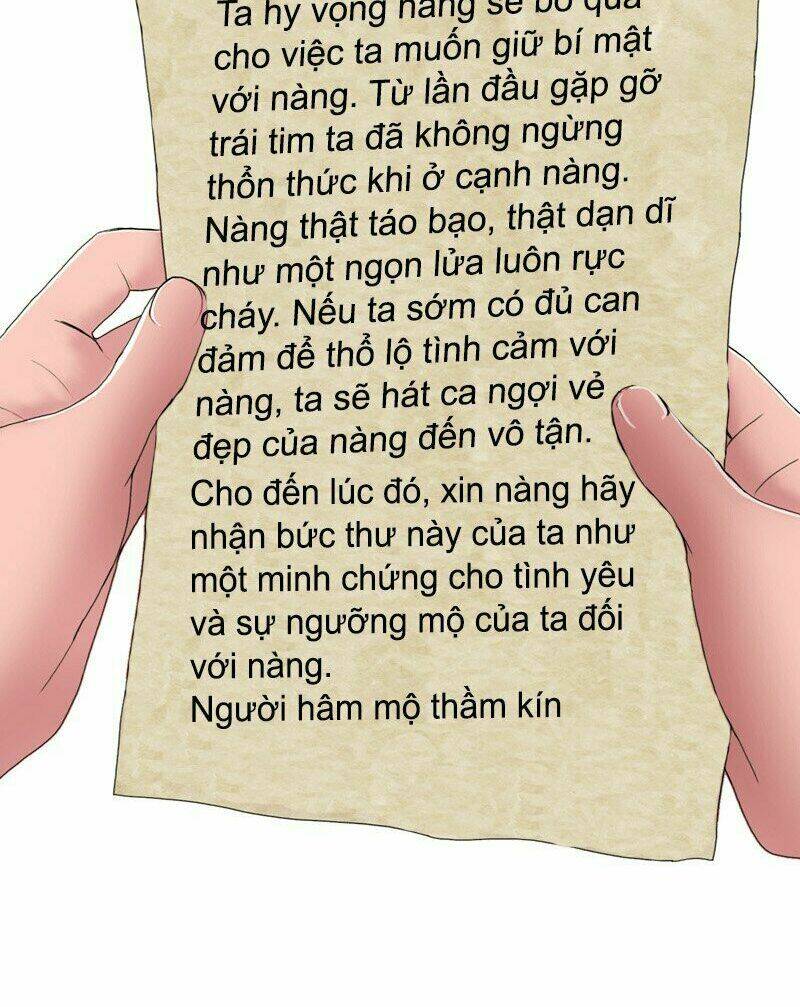 Ta hy vọng nàng sẽ bỏ qua
cho việc ta muốn giữ bí mật
với nàng. Từ lần đầu gặp gỡ
trái tim ta đã không ngừng
thổn thức khi ở cạnh nàng.
Nàng thật táo bạo, thật dạn dĩ
như một ngọn lửa luôn rực
cháy. Nếu ta sớm có đủ can
đảm để thổ lộ tình cảm với
nàng, ta sẽ hát ca ngợi vẻ
đẹp của nàng đến vô tận.
Cho đến lúc đó, xin nàng hãy
nhận bức thư này của ta như
một minh chứng cho tình yêu
và sự ngưỡng mộ của ta đối
với nàng.
Người hâm mộ thầm kín